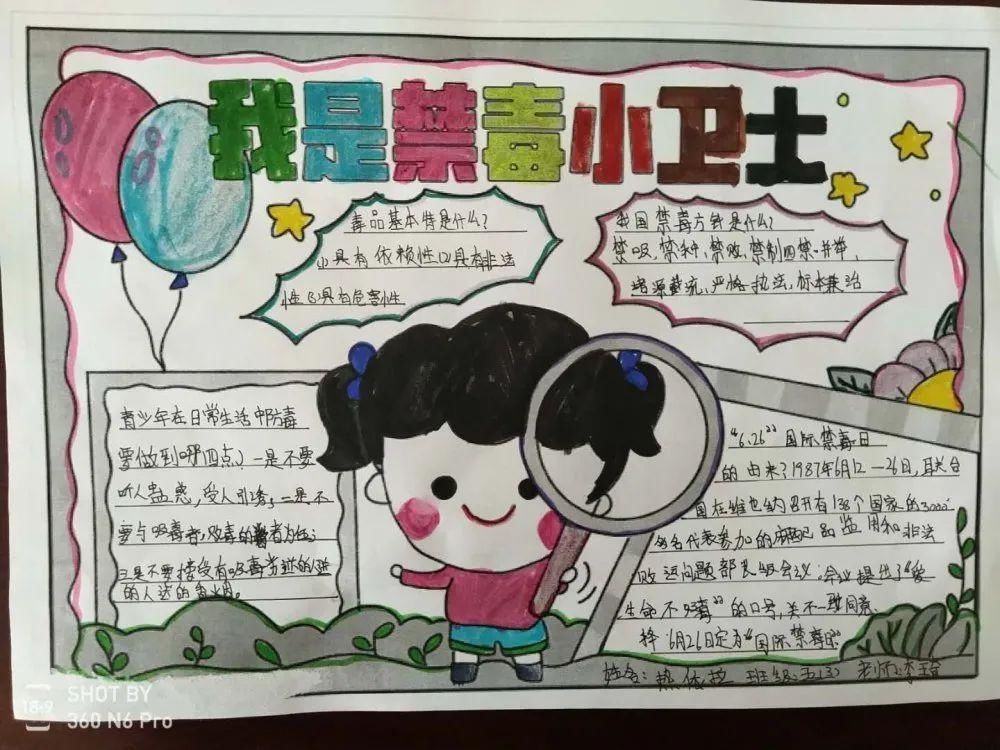 我是禁毒小卫士
毒品基本特是什么?
(1)具有依赖性(2)具有非法
性(3)具有危害性
我国禁毒方针是什么?
禁吸、禁种、禁贩、禁制四禁并举、
堵源截流、严格执法、标本兼治
青少年在日常生活中防毒
要做到哪四点?一是不要
听人蛊惑,受人引诱,二是不
要与吸毒者,贩毒的者为伍;
三是不要接受有吸毒劣迹的
的人送的香烟。
"6.26"国际禁毒日
的由来?1987年6月12—26日,联合
国在维也纳召开有138个国家的3000
多名代表参加的麻醉品滥用和非法
贩运问题部长级会议;会议提出了"爱
生命不吸毒"的口号,关不一致同意
择6月26日定为"国际禁毒日"
姓名: 热依拉 班级:五(3) 老师:李
SHOT BY
360 N6 Pro
18:9